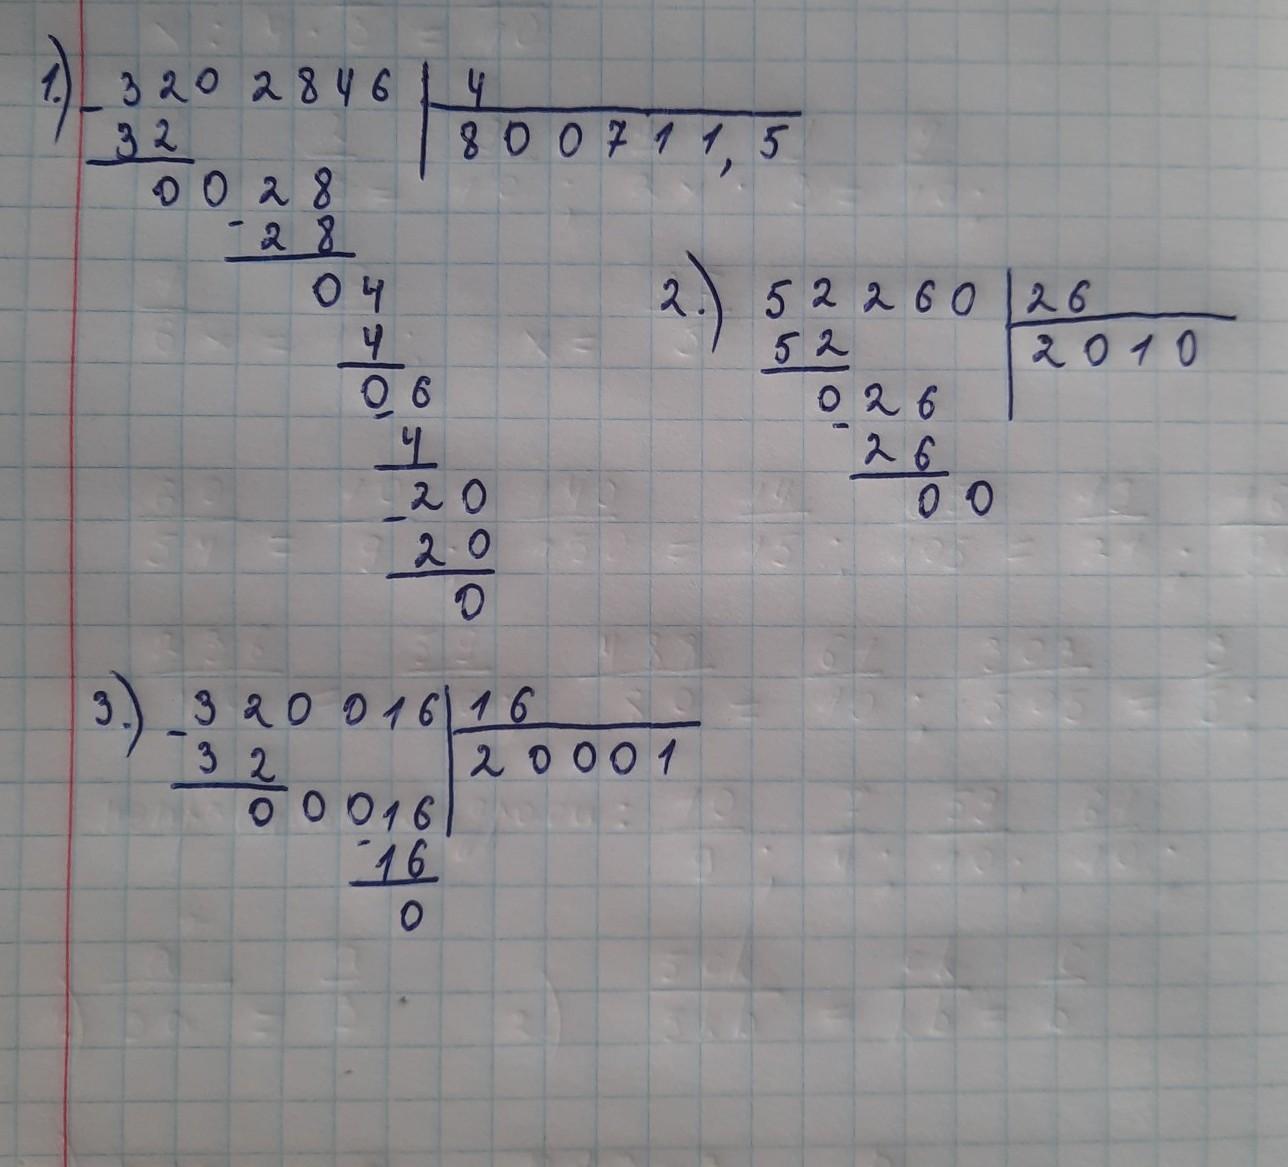 1.) - 3202846 | 4
32 | 800711,5
0028
- 28
04
4
06
- 4
- 20
20
0
2.) 52260 | 26
52 | 2010
026
- 26
00
3.) - 320016 | 16
32 | 20001
00016
- 16
0